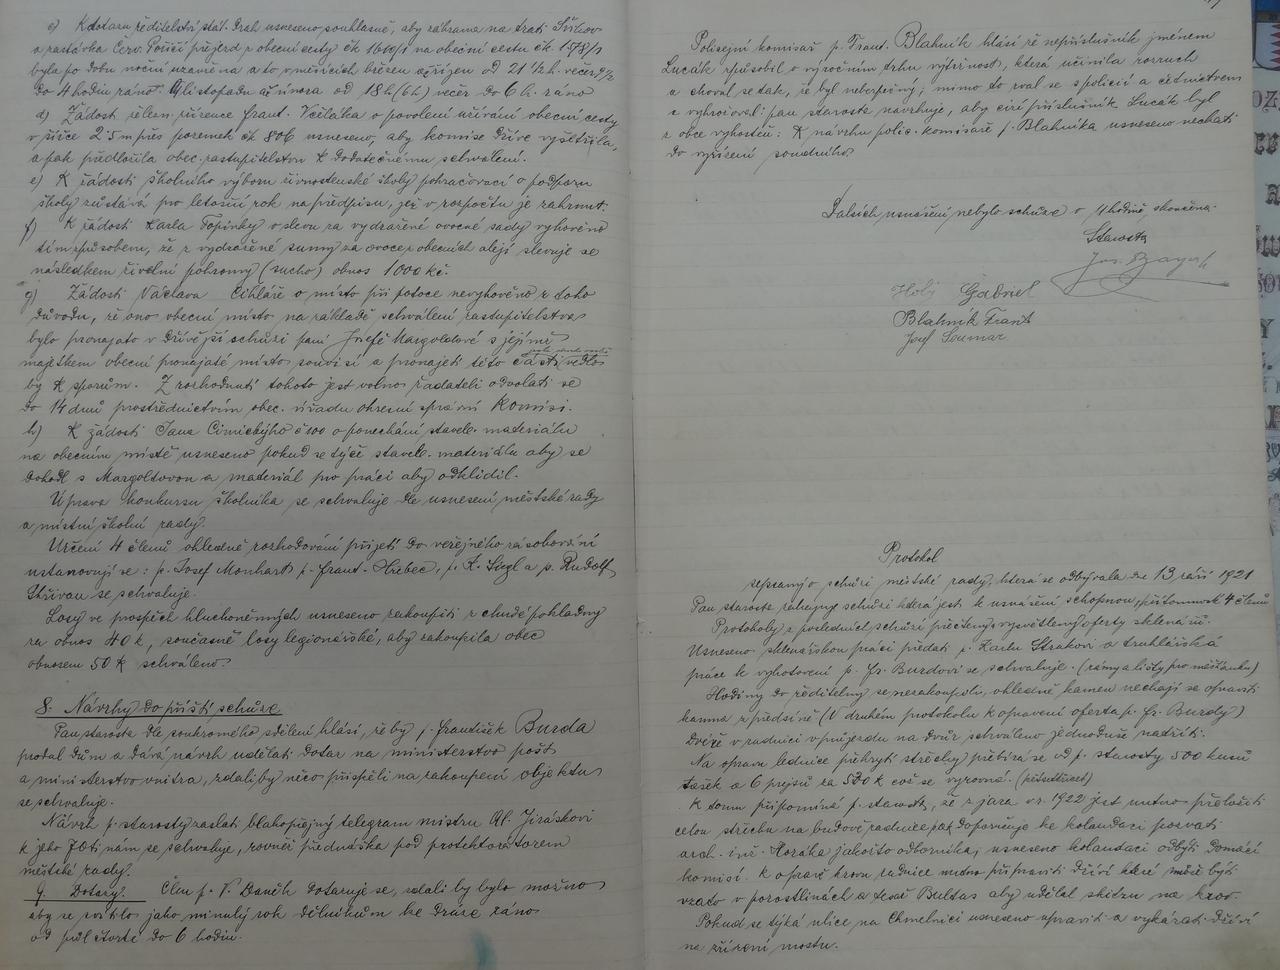 c) K dotazu ředitelství stát. drah usneseno souhlasně, aby zábrana na trati Svihov
a zastávka Červ. Poříčí přejezd z obecní cesty čk 1640/1 na obecní cestu čk. 1578/1
byla po dobu noční uzavřena a to v měsících březen až říjen od 21 1/2 h. večer
do 4 hodin ráno. V listopadu až února od 18 h (6 h) večer do 6 h. ráno
d) Žádost želez. zřízence Frant. Včeláka o povolení užívání obecní cesty
v šířce 2.5 m přes pozemek čk 806 usneseno, aby komise dříve vyšetřila,
a pak předložila obec. zastupitelstvu k dodatečnému schválení.
e) K žádosti školního výboru živnostenské školy pokračovací o podporu
školy zůstává pro letošní rok na předpisu, jež v rozpočtu je zahrnut.
f) K žádosti Karla Topinky o slevu za vydražené ovocné sady vyhověno
tím způsobem, že z vydražené sumy za ovoce z obecních alejí slevuje se
následkem živelní pohromy (sucho) obnos 1000 kč.
g) Žádosti Václava Cihláře o místo při potoce nevyhověno z toho
důvodu, že ono obecní místo na základě schválení zastupitelstva
bylo pronajato v dřívější schůzi paní Josefě Margoldové s jejímž
majetkem obecní pronajaté místo souvisí a pronajetí této části vedlo
by k sporům. Z rozhodnutí tohoto jest volno žadateli odvolati se
do 14 dnů prostřednictvím obec. úřadu okresní správní komisi.
h) K žádosti Jana Cimického č 100 o ponechání staveb. materiálu
na obecním místě usneseno pokud se týče staveb. materiálu aby se
dohodl s Margoltovou a materiál pro práci aby odklidil.
Úprava konkursu školníka se schvaluje dle usnesení městské rady
a místní školní rady.
Určení 4 členů ohledně rozhodování přijetí do veřejného zásobování
ustanovují se: p. Josef Monhart p. Frant. Hřebec, p. K. Siegl a p. Rudolf
Střivan se schvaluje.
Losy ve prospěch hluchoněmých usneseno zakoupiti z chudé pokladny
za obnos 40 k, současně losy legionářské, aby zakoupila obec
obnosem 50 k schváleno.
8. Návrhy do příští schůze
Pan starosta dle soukromého sdělení hlásí, že by p. František Burda
prodal dům a dává návrh udělati dotaz na ministerstvo pošt
a ministerstvo vnitra, zdali by něco přispěli na zakoupení objektu
se schvaluje.
Návrh p. starosty zaslati blahopřejný telegram mistru Al. Jiráskovi
k jeho 70ti nám se schvaluje, rovněž přednáška pod protektorátem
městské rady.
9. Dotazy. Člen p. V. Daněk dotazuje se, zdali by bylo možno
aby se svítilo jako minulý rok dělníkům ke dráze ráno
od půl čtvrté do 6 hodin.
Policejní komisař p. Frant. Blahník hlásí že nepříslušník jménem
Lucák způsobil o výročním trhu výtržnost, která učinila rozruch
a choval se tak, že byl nebezpečný; mimo to rval se s policií a četnictvem
a vyhrožoval: pan starosta navrhuje, aby cizí příslušník Lucák byl
z obce vyhoštěn: K návrhu polic. komisaře p. Blahníka usneseno nechati
do vyřízení soudního.
Dalších usnášení nebylo schůze o 11 hodině, skončena.
Starosta
Holý Gabriel
Blahník Frant
Josef Soumar
Protokol
sepsaný o schůzi městské rady, která se odbývala dne 13 září 1921
Pan starosta zahajuje schůzi která jest k usnášení schopnou, přítomno 4 členů
Protokoly z posledních schůzí přečteny, vysvětleny oferty sklenářů.
Usneseno sklenářskou práci předati p. Karlu Strakovi a truhlářská
práce k vyhotovení p. Fr. Burdovi se schvaluje. (rámy a lišty pro měšťanku)
Hodiny do ředitelny se nezakoupí, ohledně kamen nechají se opraviti
kamna z předsíně (V druhém protokolu k opravení oferta p. Fr. Burdy)
Dvéře v radnici v průjezdu na dvůr schváleno jednoduše natříti.
Na opravu lednice přikrytí střechy přebírá se od p. starosty 500 kusů
tašek a 6 prejsů za 500 k což se vyrovná. (pětset)
K tomu připomíná p. starosta, že z jara v r. 1922 jest nutno přeložiti
celou střechu na budově radnice, pak doporučuje ke kolaudaci pozvati
arch. inž. Horáka jakožto odborníka, usneseno kolaudaci odbýti domácí
komisí. K opravě krovu radnice nutno připraviti dříví které může býti
vzato v porostlinách a tesař Bultas aby udělal skizzu na krov.
Pokud se týká ulice na Chmelnici usneseno upraviti a vykázati dříví
na zřízení mostu.